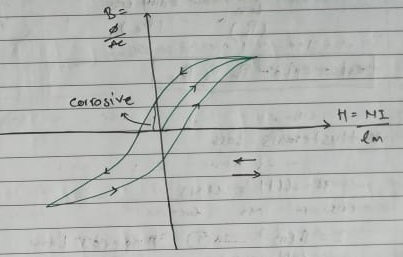 B =
φ
Ac
corrosive
H = NI
lm